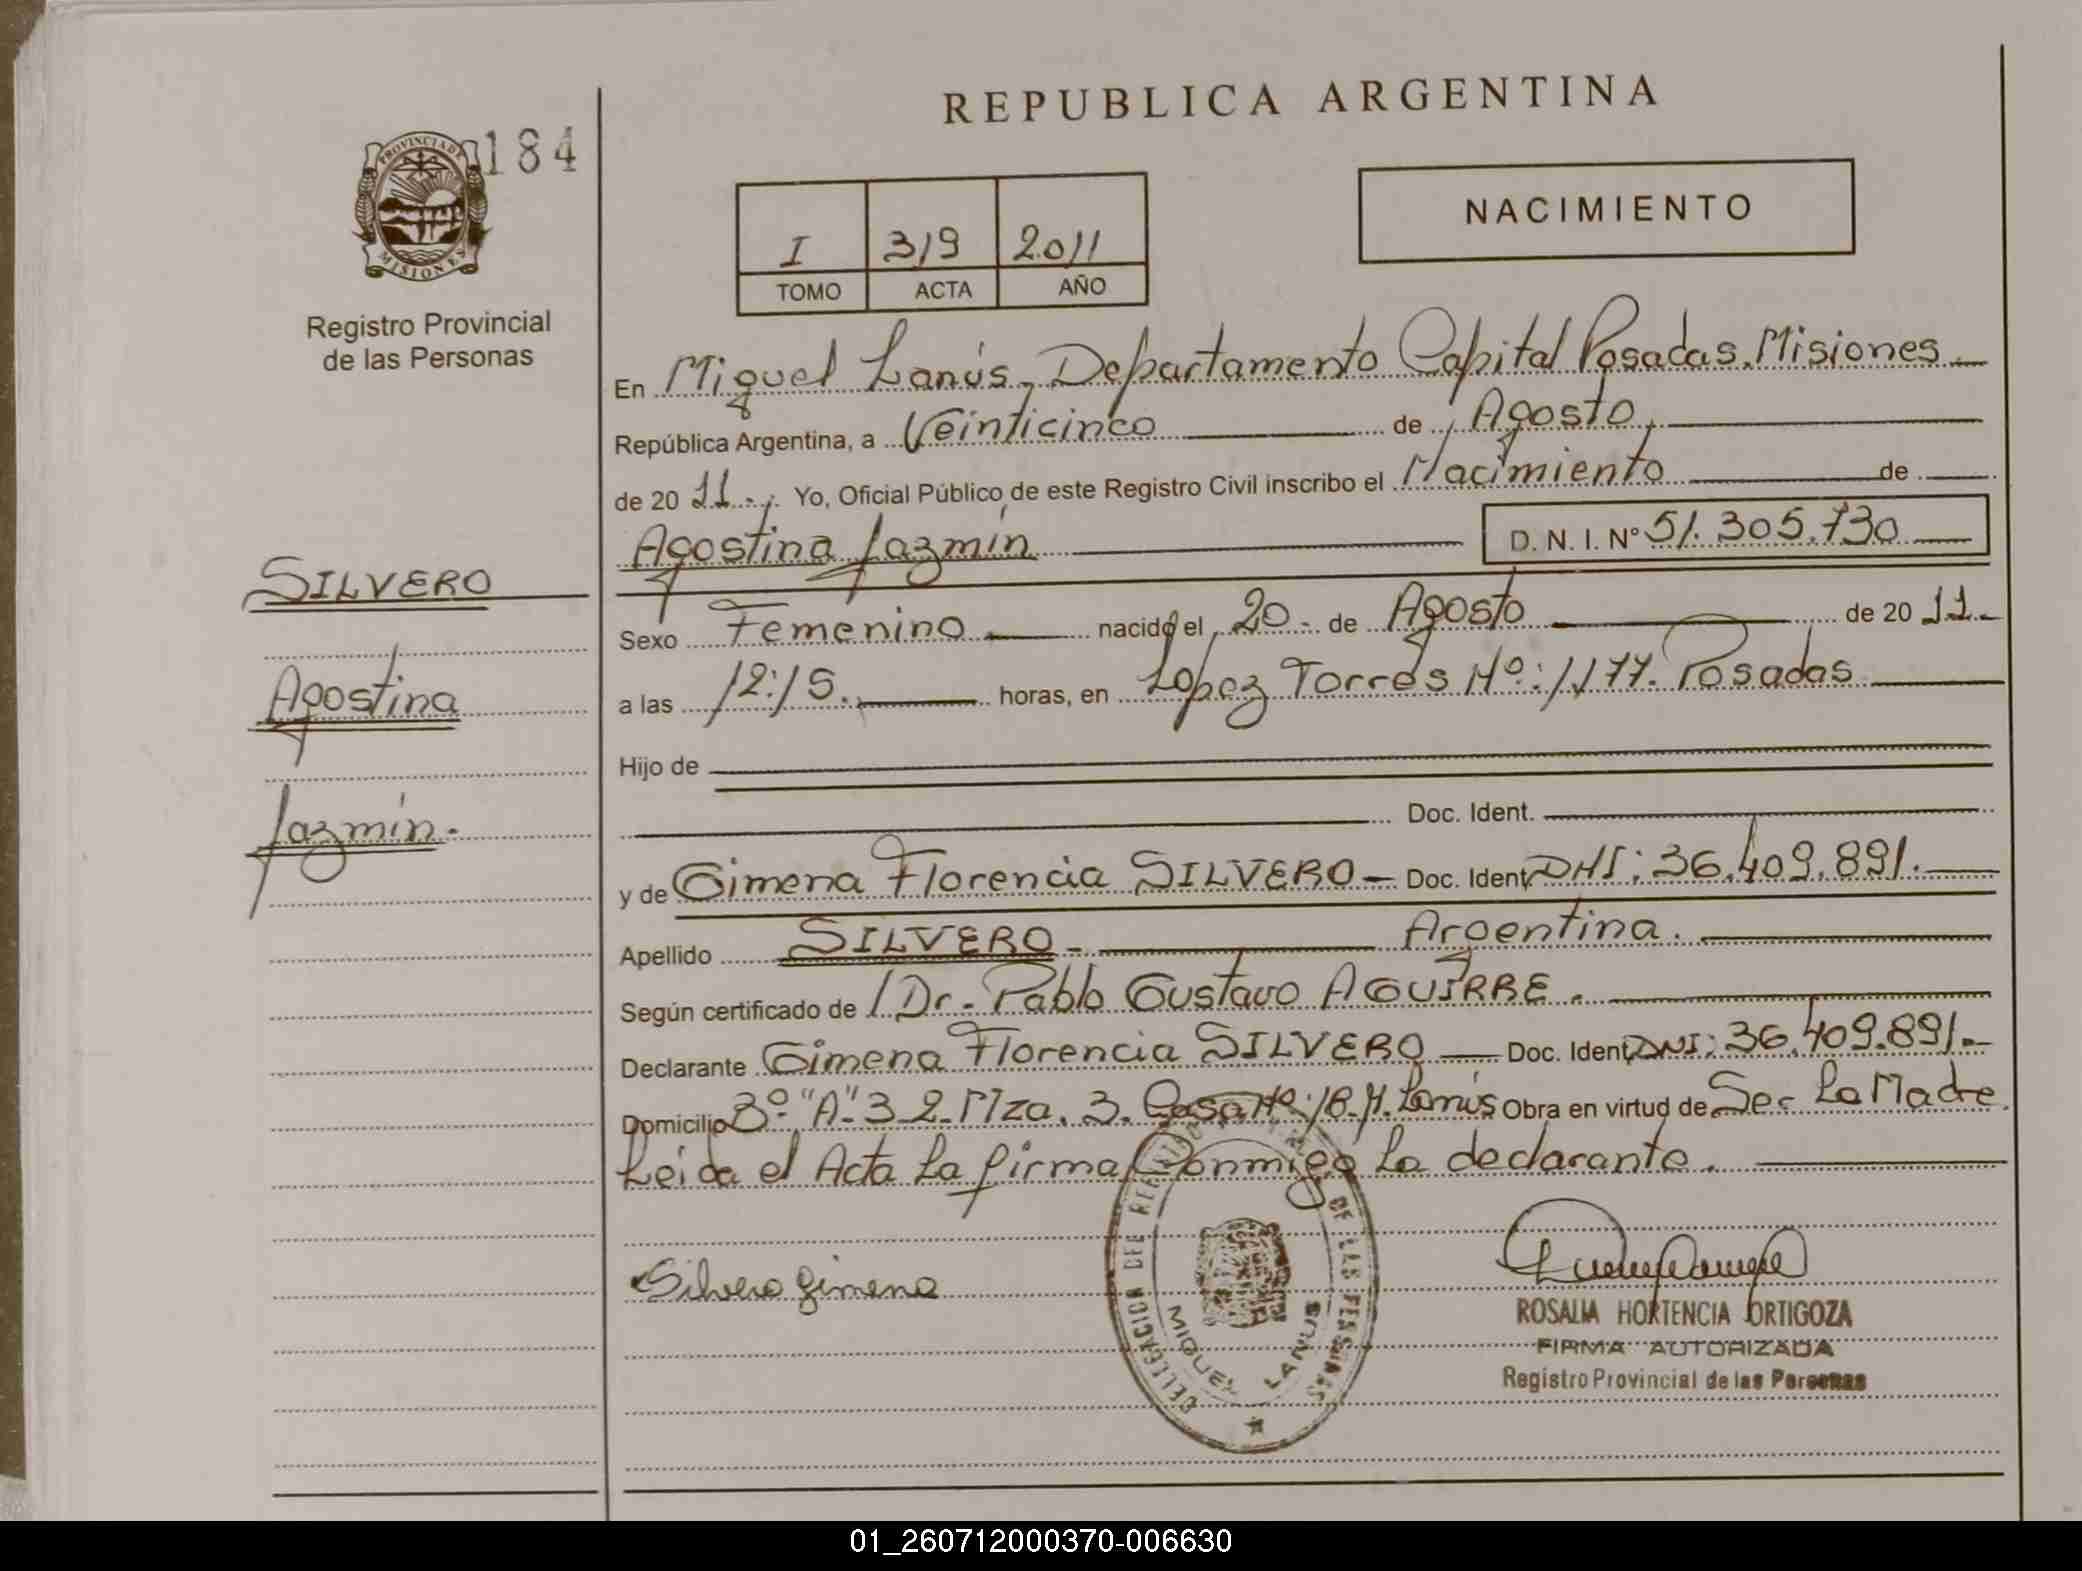 REPUBLICA ARGENTINA
184
PROVINCIA DE
MISIONES
Registro Provincial
de las Personas
NACIMIENTO
I 319 2011
TOMO ACTA AÑO
En Miguel Lanús, Departamento Capital Posadas. Misiones
República Argentina, a Veinticinco de Agosto
de 20 11.- Yo, Oficial Público de este Registro Civil inscribo el Nacimiento de
Agostina Jazmín D. N. I. Nº 51.305.730
SILVERO
Agostina
Jazmín.
Sexo Femenino nacido el 20. de Agosto de 20 11.
a las 12:15. horas, en López Torres Nº: 1177. Posadas
Hijo de
Doc. Ident.
y de Gimena Florencia SILVERO Doc. Ident. DNI: 36.409.891.
Apellido SILVERO Argentina.
Según certificado de Dr. Pablo Gustavo AGUIRRE.
Declarante Gimena Florencia SILVERO Doc. Ident. DNI: 36.409.891.
Domicilio 3º "A" 3 2 Mza. 3. Casa Nº: 18. M. Lanús Obra en virtud de Ser La Madre.
Leida el Acta La firma Conmigo La declarante.
Silvero Gimena
DELEGACION DEL REGISTRO DE LAS PERSONAS
MIGUEL LANUS
ROSALIA HORTENCIA ORTIGOZA
FIRMA AUTORIZADA
Registro Provincial de las Personas
01_260712000370-006630